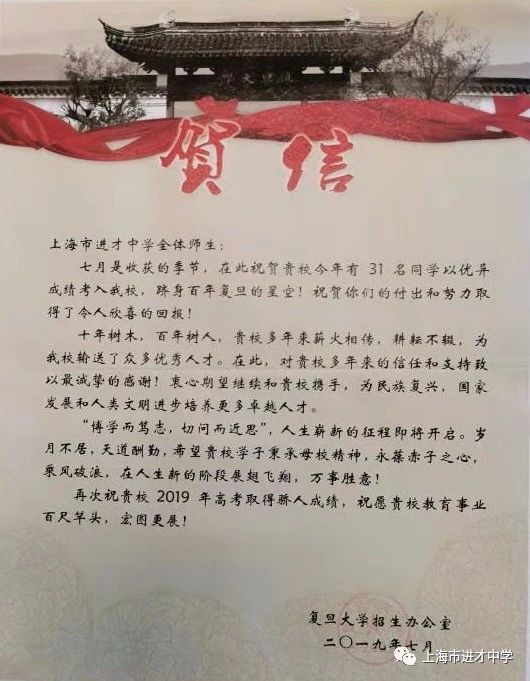 贺信
上海市进才中学全体师生：
七月是收获的季节，在此祝贺贵校今年有 31 名同学以优异
成绩考入我校，跻身百年复旦的星空！祝贺你们的付出和努力取
得了令人欣喜的回报！
十年树木，百年树人，贵校多年来薪火相传，耕耘不辍，为
我校输送了众多优秀人才。在此，对贵校多年来的信任和支持致
以最诚挚的感谢！衷心期望继续和贵校携手，为民族复兴，国家
发展和人类文明进步培养更多卓越人才。
“博学而笃志，切问而近思”，人生崭新的征程即将开启。岁
月不居，天道酬勤，希望贵校学子秉承母校精神，永葆赤子之心，
乘风破浪，在人生新的阶段展翅飞翔，万事胜意！
再次祝贵校 2019 年高考取得骄人成绩，祝愿贵校教育事业
百尺竿头，宏图更展！
复旦大学招生办公室
二〇一九年七月
上海市进才中学